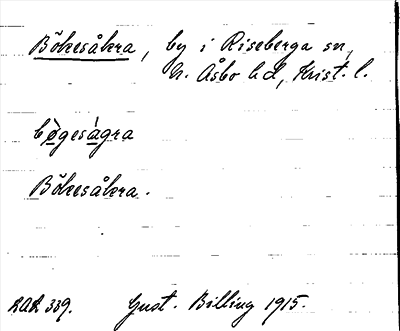 Bökesåkra, by i Riseberga sn,
N. Åsbo hd, Krist. l.
bø̀geságra
Bökesåkra.
RAR 339. Gust. Billing 1915.